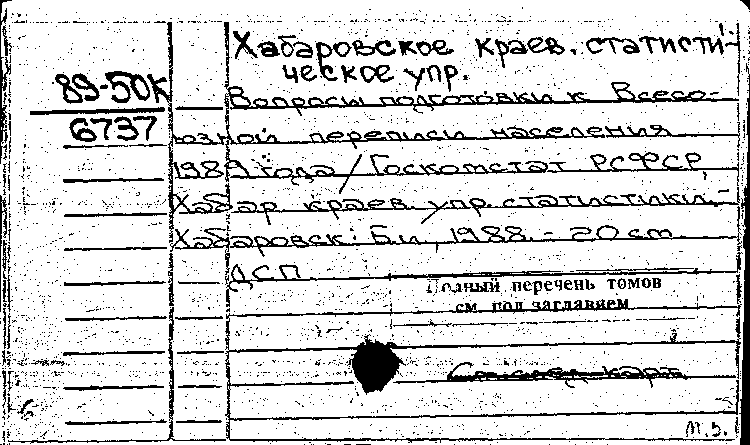 Хабаровское краев. статисти-
ческое упр.
89-50к
6737
Вопросы подготовки к Всесо-
юзной переписи населения
1989 года / Госкомстат РСФСР,
Хабар. краев. упр. статистики. -
Хабаровск: Б.и., 1988. - 20 см.
ДСП
Полный перечень томов
см. под заглавием
См. след. карт.
6
М.З.